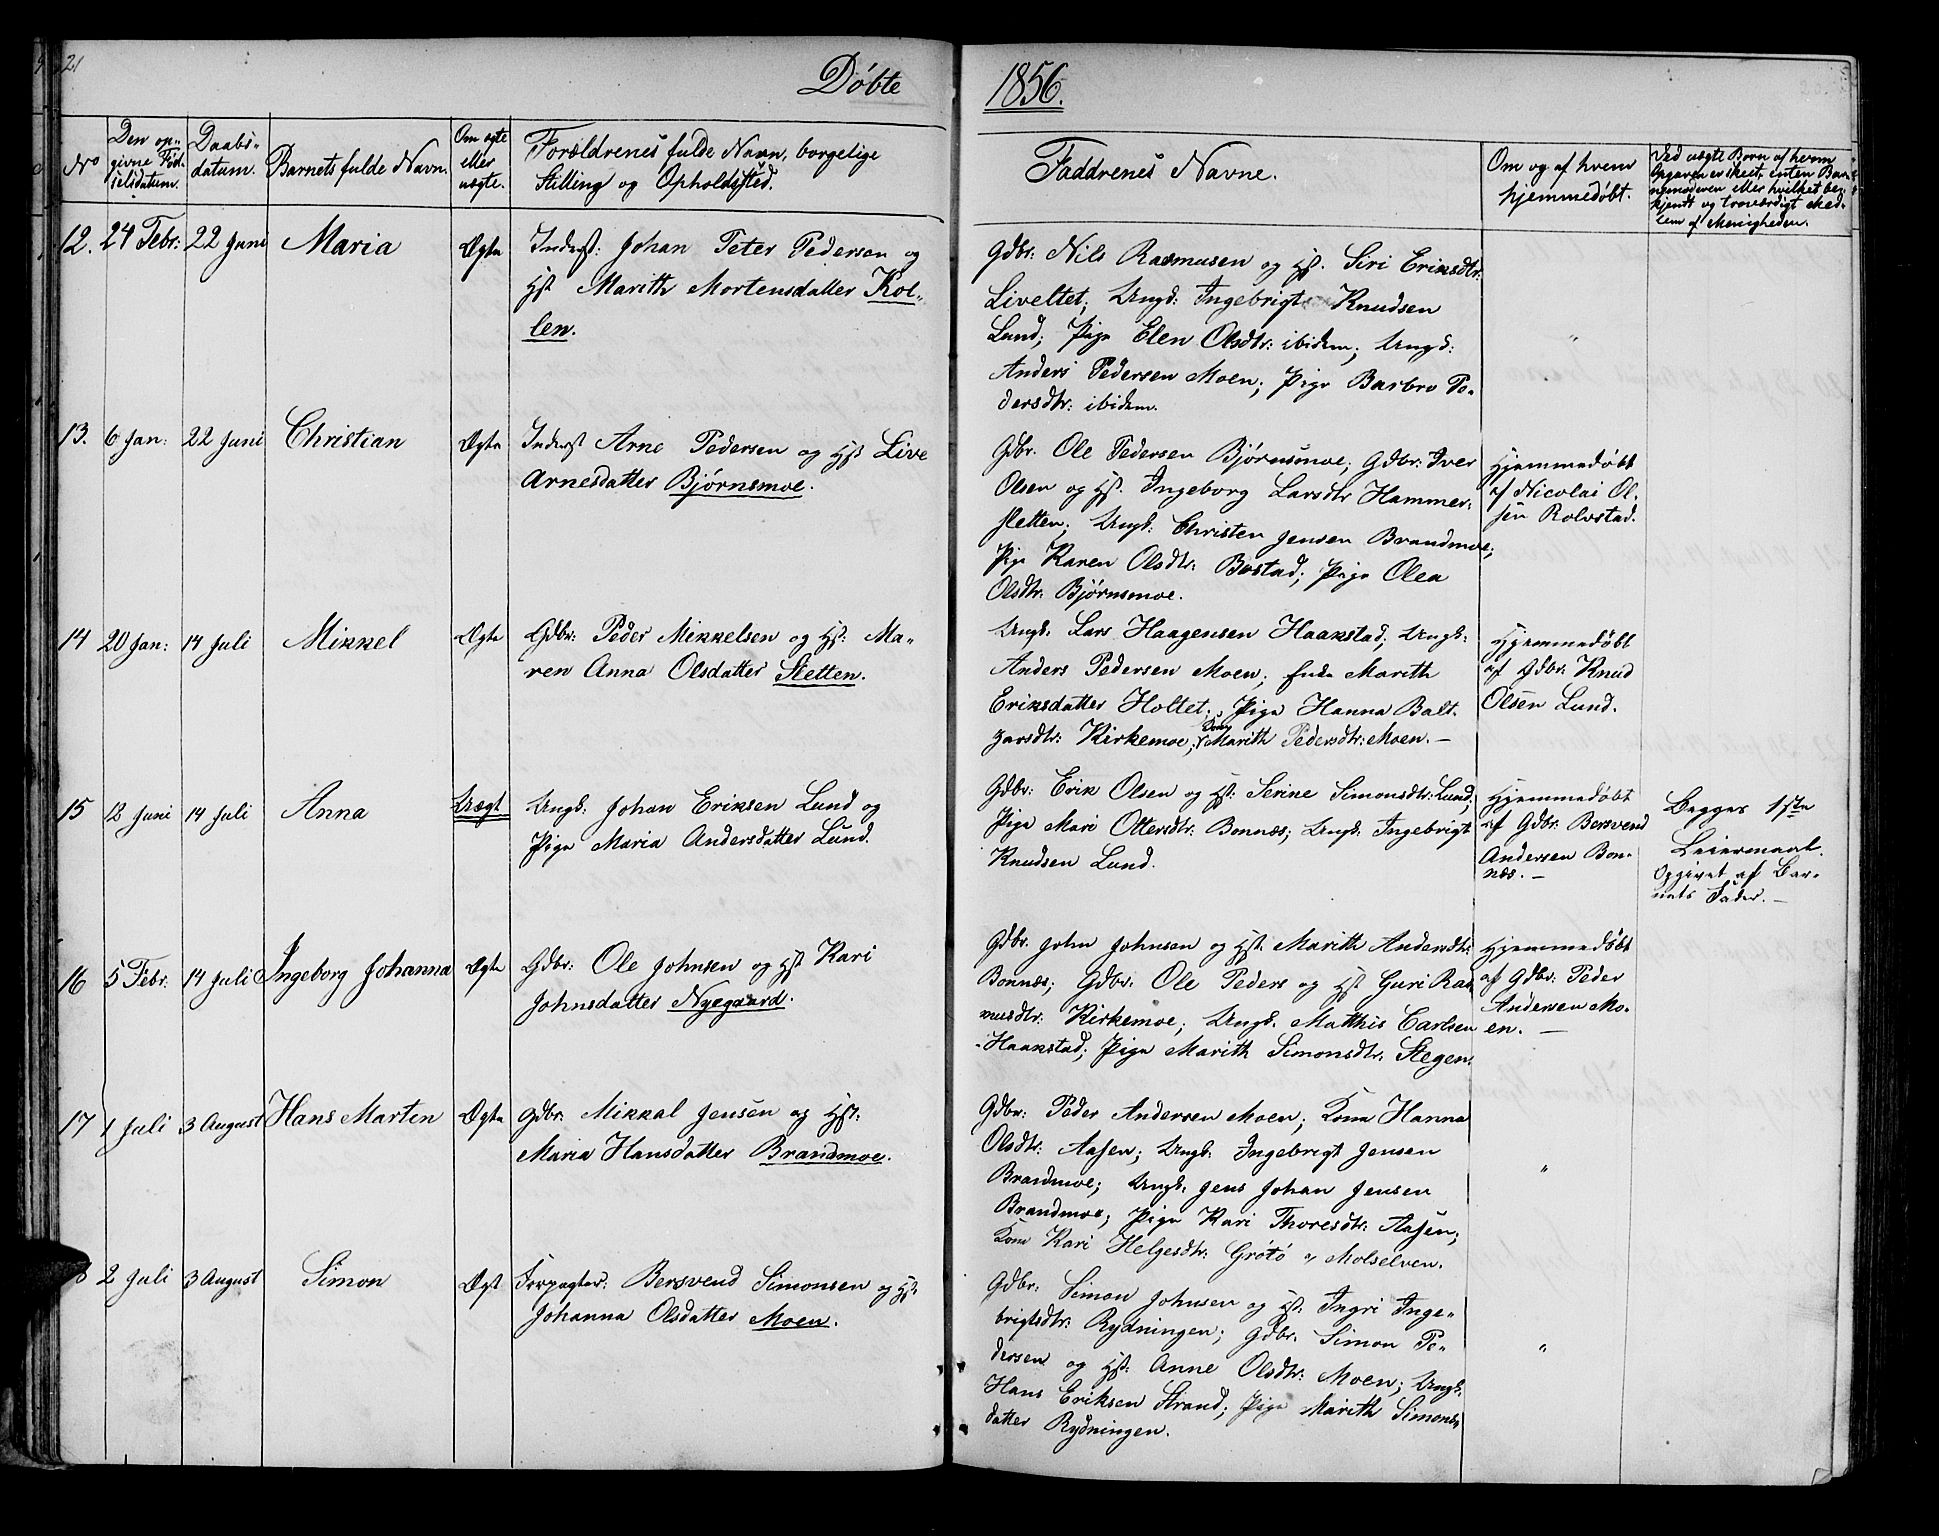 21
Döbte
1856.
No
Den op-
givne Föd-
selsdatum.
Daabs-
datum.
Barnets fulde Navn.
Om ægte
eller
uægte.
Forældrenes fulde Navn, borgelige
Stilling og Opholdsted.
Faddrenes Navne.
Om og af hvem
hjemmedöbt.
Ved uægte Börn af hvem
Opgaven er skeet, enten Bar-
nemoderen eller hvilket be-
kjendt og troværdigt Med-
lem af Menigheden.
12. 24 Febr: 22 Juni Maria Ægte
Inderst: Johan Peter Pedersen og
Hst Marith Mortensdatter Kol-
len.
Gdbr: Nils Rasmusen og Hst. Siri Eriksdtr:
Liveltet; Ungk: Ingebrigt Knudsen
Lund; Pige Elen Olsdtr: ibidem; Ungk:
Anders Pedersen Moen; Pige Barbro Pe-
dersdtr: ibidem.
"
13. 6 Jan: 22 Juni Christian Ægte
Inderst Arne Pedersen og Hst Live
Arnesdatter Björnsmoe.
Gdbr. Ole Pedersen Björnsmoe; Gdbr: Iver
Olsen og Hst. Ingeborg Larsdtr Hammer-
sletten; Ungk: Christen Jensen Brandmoe;
Pige Karen Olsdtr: Bostad; Pige Olea
Olsdtr: Björnsmoe.
Hjemmedöbt
af Nicolai Ol-
sen Rolvstad.
14 20 Jan: 14 Juli Mikkel Ægte
Gdbr: Peder Mikkelsen og Hst: Ma-
ren Anna Olsdatter Sletten.
Ungk: Lars Haagensen Haakstad; Ungk:
Anders Pedersen Moen; Enke Marith
Eriksdatter Holtet; Pige Hanna Balt-
zarsdtr: Kirkemoe; Kone Marith Pedersdtr: Moen.—
Hjemmedöbt
af Gdbr: Knud
Olsen Lund.
15 12 Juni 14 Juli Anna Uægt
Ungk: Johan Eriksen Lund og
Pige Maria Andersdatter Lund.
Gdbr: Erik Olsen og Hst: Serine Simonsdtr: Lund;
Pige Mari Ottersdtr: Bonnæs; Ungk: Ingebrigt
Knudsen Lund.
Hjemmedöbt
af Gdbr: Bersvend
Andersen Bon-
næs.—
Begges 1ste
Leiermaal.
Opgivet af Bar-
nets Fader.—
16 5 Febr: 14 Juli Ingeborg Johanna Ægte
Gdbr: Ole Johnsen og Hst Kari
Johnsdatter Nyegaard.
Gdbr. John Johnsen og Hst: Marith Andersdtr:
Bonnæs; Gdbr: Ole Peders og Hst Guri Ras
musdtr: Kirkemoe; Ungk. Matthis Carlsen
Haakstad; Pige Marith Simonsdtr: Stegen.
Hjemmedöbt
af Gdbr: Peder
Andersen Mo-
en.—
17 1 Juli 3 August Hans Marten Ægte
Gdbr: Mikkal Jensen og Hst:
Maria Hansdatter Brandmoe.
Gdbr: Peder Andersen Moen; Kone Hanna
Olsdtr: Aasen; Ungk: Ingebrigt Jensen
Brandmoe; Ungk. Jens Johan Jensen
Brandmoe; Pige Kari Thoresdtr: Aasen;
Kone Kari Helgesdtr: Grötö v/ Molselven.
"
8 2 Juli 3 August Simon Ægt
Forpagter: Bersvend Simonsen og Hst:
Johanna Olsdatter Moen.
Gdbr: Simon Johnsen og Hst: Ingri Inge-
brigtsdtr: Rydningen; Gdbr: Simon Pe-
dersen og Hst: Anne Olsdtr: Moen; Ungk:
Hans Eriksen Strand; Pige Marith Simons-
datter Rydningen.
"